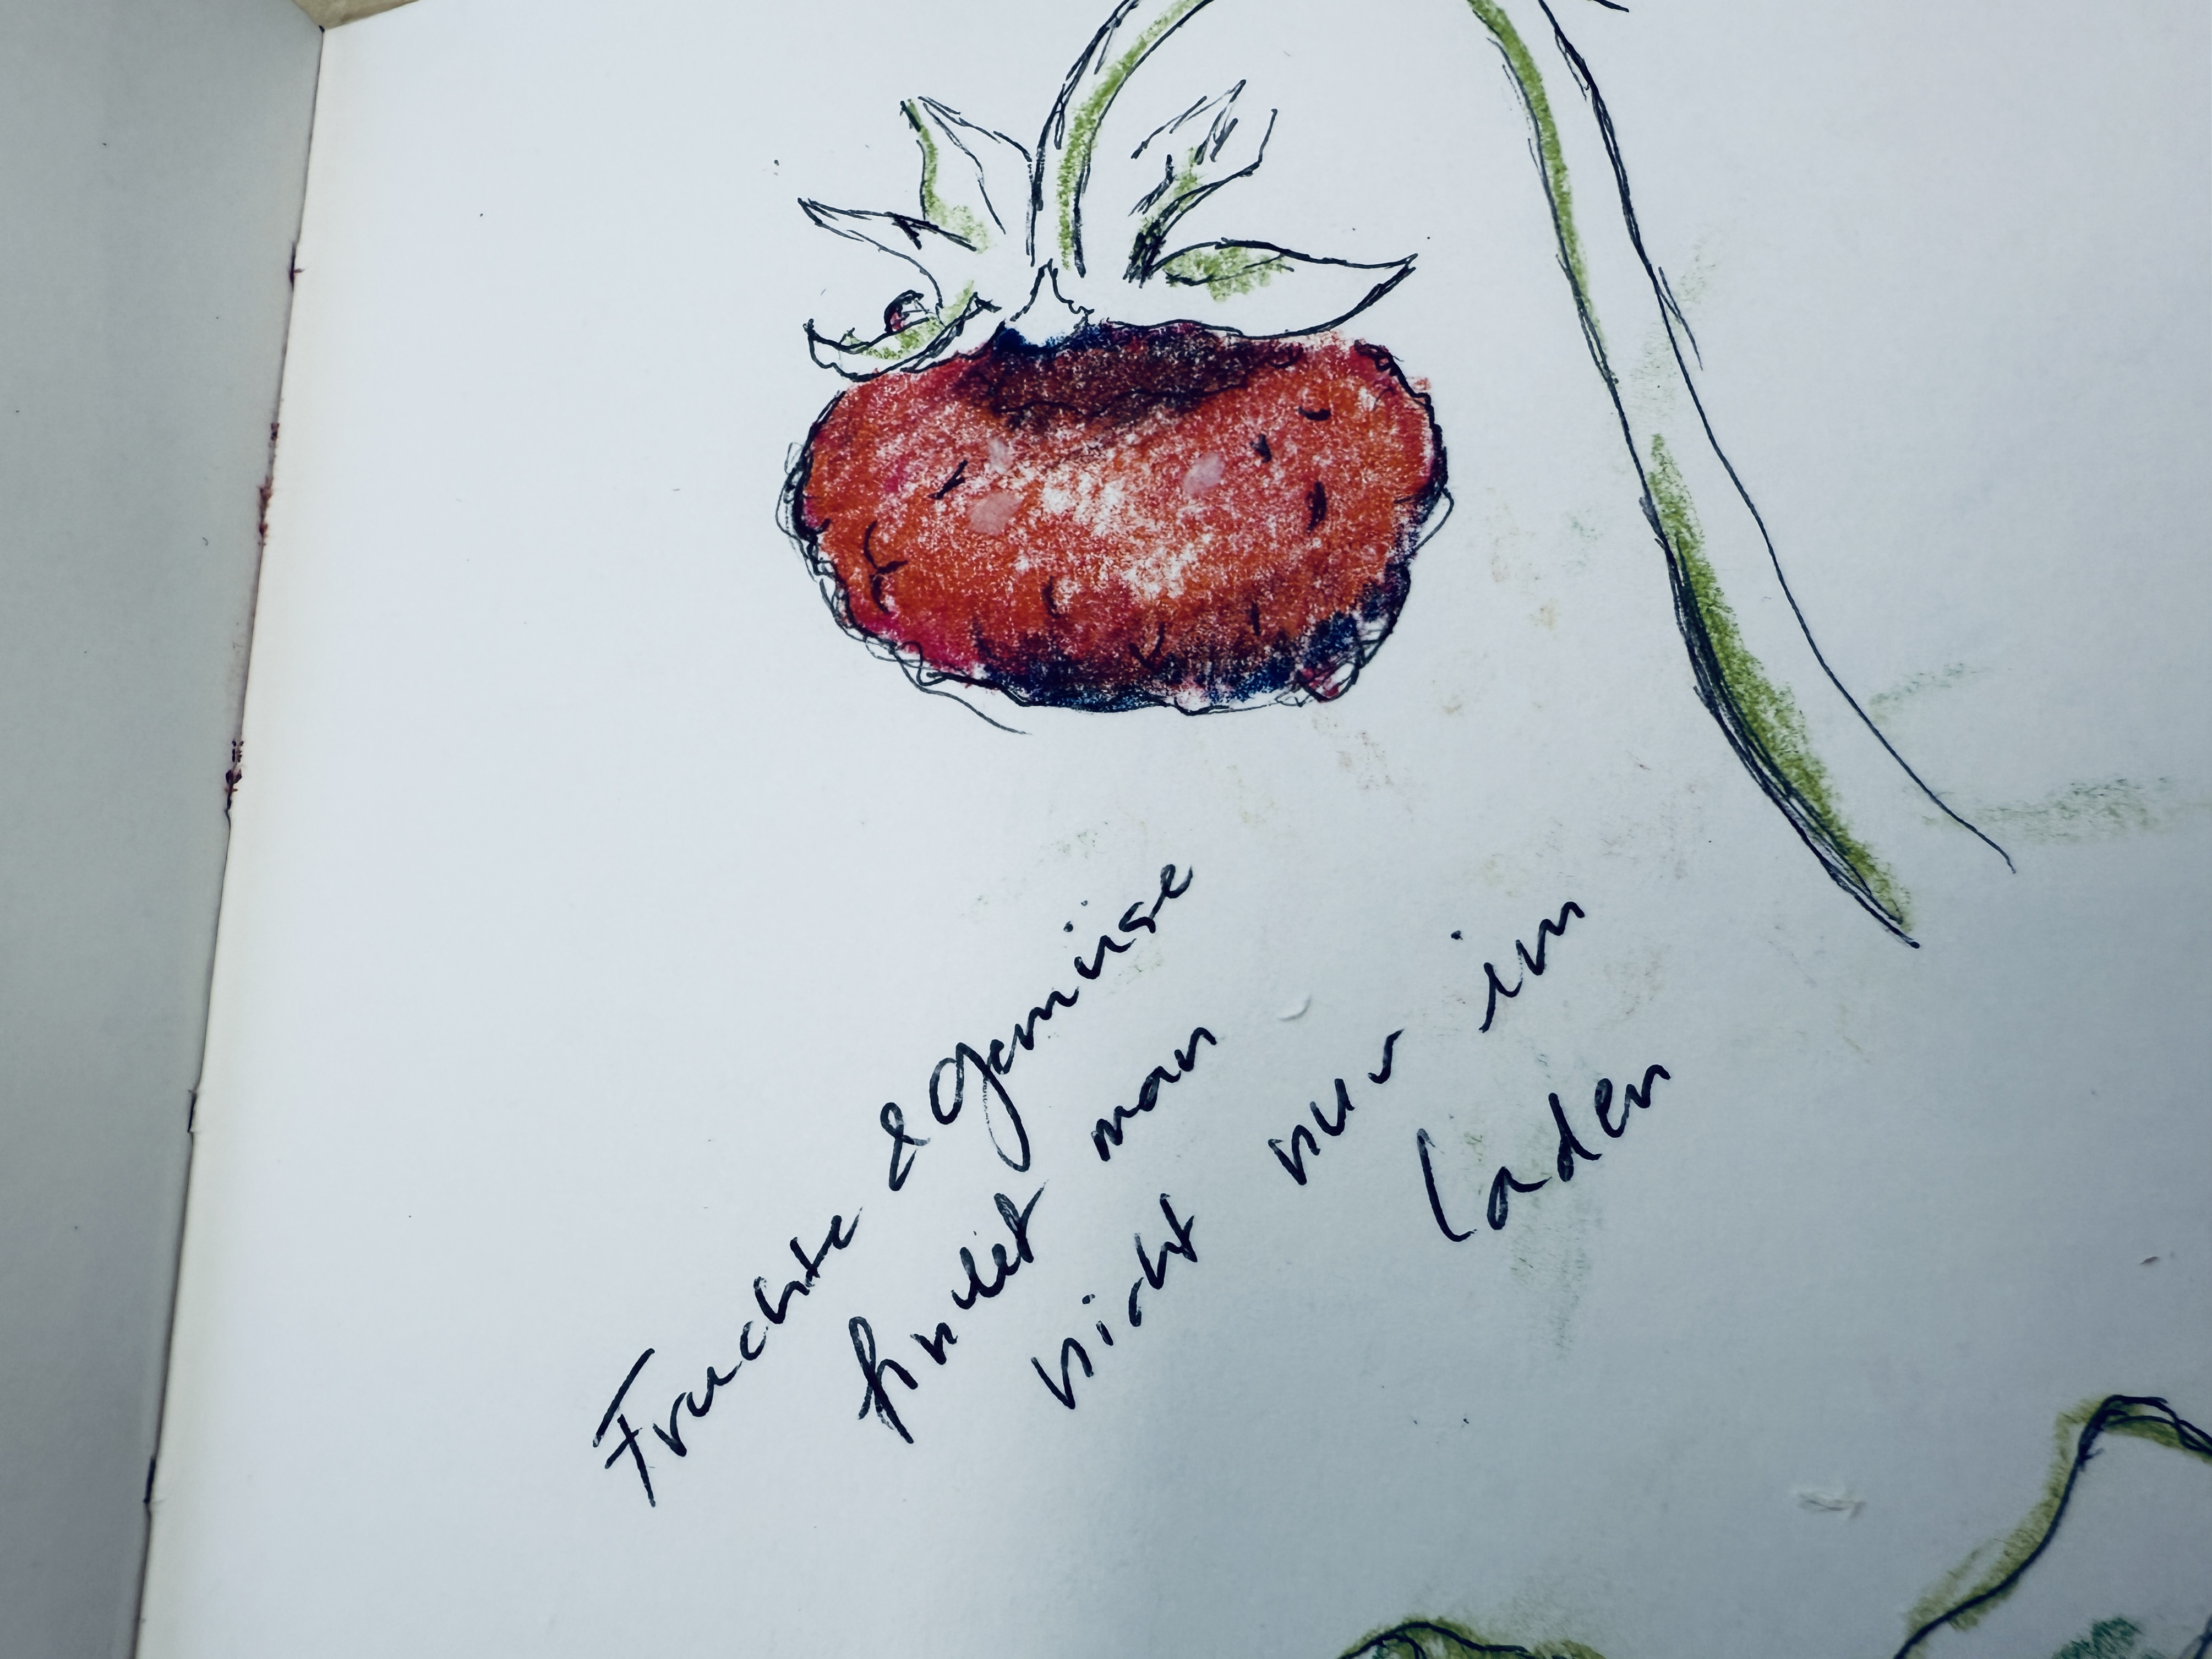 Fruchte & Gemüse
findet man
nicht nur im
Laden